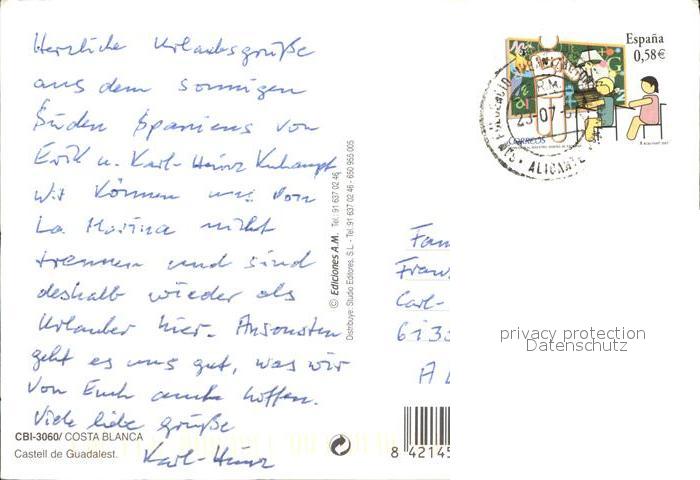 Herzliche Urlaubsgrüße
aus dem sonnigen
Süden Spaniens von
Erik u. Karl-Heinz
Wir können uns von
La Marina nicht
trennen und sind
deshalb wieder als
Urlauber hier. Ansonsten
geht es uns gut, was wir
von Euch auch hoffen.
Viele liebe Grüße
Karl-Heinz
CBI-3060/ COSTA BLANCA
Castell de Guadalest.
© Ediciones A.M. Tel.: 91 637 02 46
Distribuye: Studio Editores, S.L. - Tel. 91 637 02 46 - 650 955 005
España
0,58€
CORREOS
23-07
ALICANTE
Fam
Fran
Carl-
6135
8 42145
privacy protection
Datenschutz